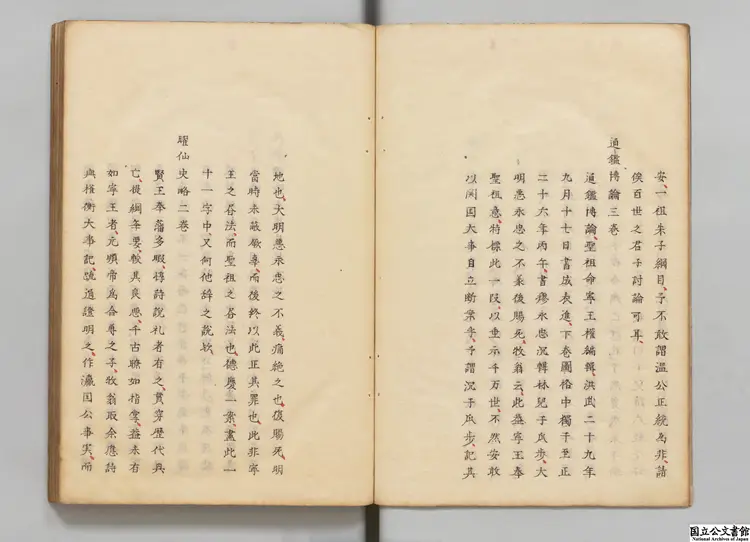 安、一祖朱子綱目、予不敢謂溫公正統為非、請
俟百世之君子討論可耳、
通鑑博論三卷
通鑑博論、聖祖命寧王權編輯、洪武二十九年
九月十七日書成表進、下卷圖格中獨于至正
二十六年丙午、書廖永忠沉韓林兒于瓜步、大
明惡永忠之不義後賜死、牧翁云、此蓋寧王奉
聖祖意、特標此一段、以垂示千万世、不然安敢
以開国大事自立断案乎、予謂沉于瓜步、記其
地也、大明惡永忠之不義、痛絕之也、後賜死、明
當時未蔽厥辜、而後終以此正其罪也、此非寧
王之各法、而聖祖之各法也、德慶一案、盡此一
十一字中、又何他辞之説欤、
臞仙史略二卷
賢王奉藩多暇、得詩説礼者有之、貫穿歴代興
亡、提綱举要、較其良悪、千古瞭如指掌、蓋未有
如寧王者、元順帝為合尊之子、牧翁取余應詩
與權衡大事記、號通證明之、作瀛国公事実、而
国立公文書館
National Archives of Japan